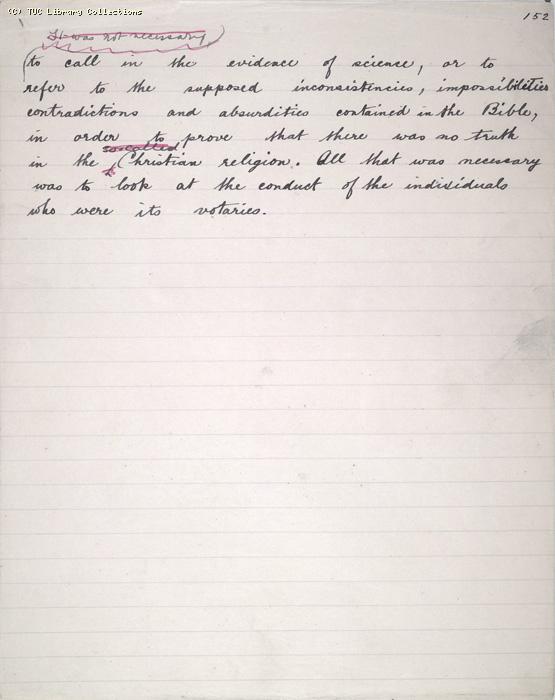 (C) TUC Library Collections
152
It was not necessary
to call in the evidence of science, or to
refer to the supposed inconsistencies, impossibilities
contradictions and absurdities contained in the Bible,
in order to prove that there was no truth
so-called
in the Christian religion. All that was necessary
was to look at the conduct of the individuals
who were its votaries.